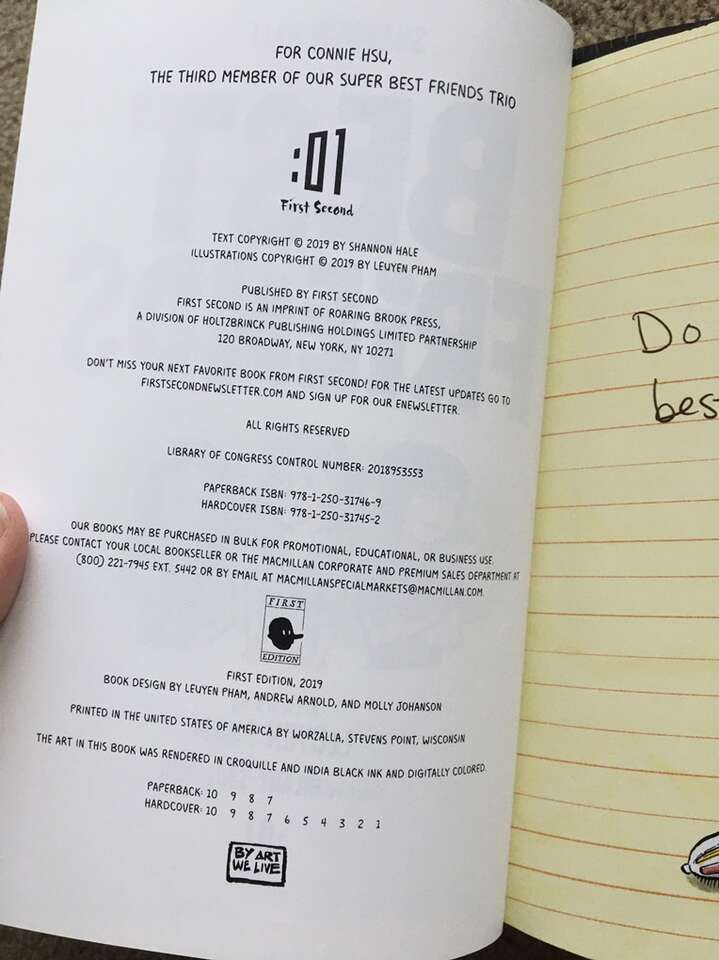 FOR CONNIE HSU,
THE THIRD MEMBER OF OUR SUPER BEST FRIENDS TRIO
:01
First Second
TEXT COPYRIGHT © 2019 BY SHANNON HALE
ILLUSTRATIONS COPYRIGHT © 2019 BY LEUYEN PHAM
PUBLISHED BY FIRST SECOND
FIRST SECOND IS AN IMPRINT OF ROARING BROOK PRESS,
A DIVISION OF HOLTZBRINCK PUBLISHING HOLDINGS LIMITED PARTNERSHIP
120 BROADWAY, NEW YORK, NY 10271
DON'T MISS YOUR NEXT FAVORITE BOOK FROM FIRST SECOND! FOR THE LATEST UPDATES GO TO
FIRSTSECONDNEWSLETTER.COM AND SIGN UP FOR OUR ENEWSLETTER.
ALL RIGHTS RESERVED
LIBRARY OF CONGRESS CONTROL NUMBER: 2018953553
PAPERBACK ISBN: 978-1-250-31746-9
HARDCOVER ISBN: 978-1-250-31745-2
OUR BOOKS MAY BE PURCHASED IN BULK FOR PROMOTIONAL, EDUCATIONAL, OR BUSINESS USE.
PLEASE CONTACT YOUR LOCAL BOOKSELLER OR THE MACMILLAN CORPORATE AND PREMIUM SALES DEPARTMENT AT
(800) 221-7945 EXT. 5442 OR BY EMAIL AT MACMILLANSPECIALMARKETS@MACMILLAN.COM.
FIRST
EDITION
FIRST EDITION, 2019
BOOK DESIGN BY LEUYEN PHAM, ANDREW ARNOLD, AND MOLLY JOHANSON
PRINTED IN THE UNITED STATES OF AMERICA BY WORZALLA, STEVENS POINT, WISCONSIN
THE ART IN THIS BOOK WAS RENDERED IN CROQUILLE AND INDIA BLACK INK AND DIGITALLY COLORED.
PAPERBACK: 10 9 8 7
HARDCOVER: 10 9 8 7 6 5 4 3 2 1
BY ART
WE LIVE
Do
bes